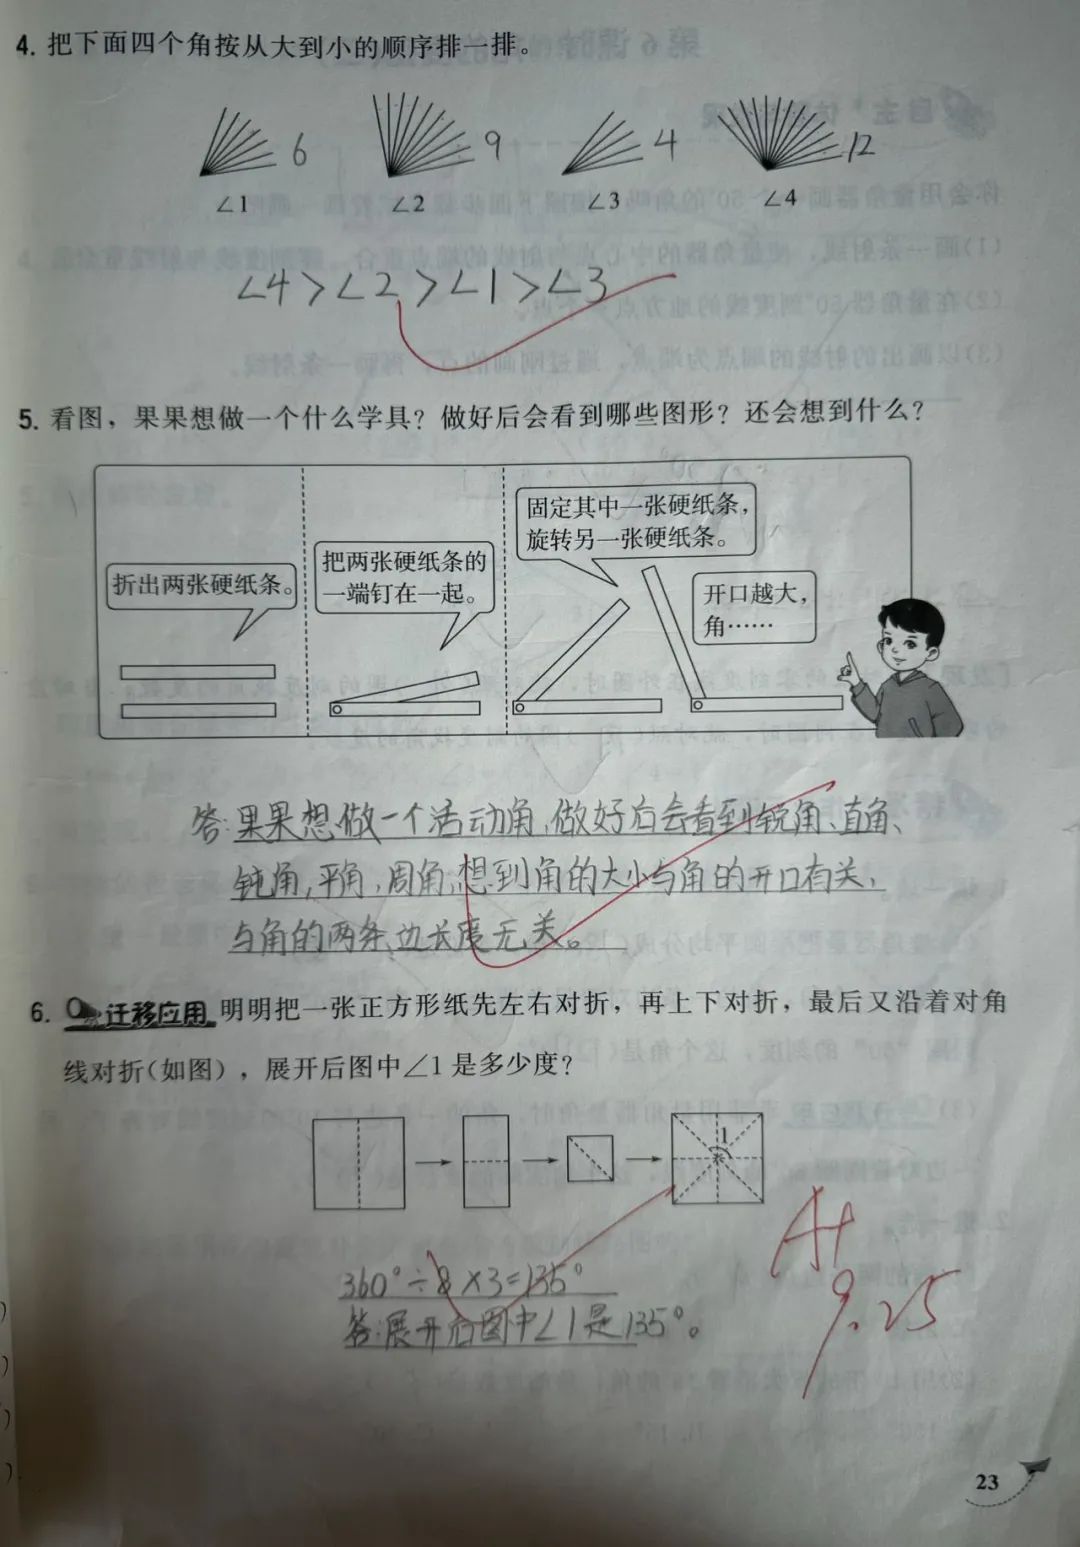 4. 把下面四个角按从大到小的顺序排一排。
6 9 4 12
∠1 ∠2 ∠3 ∠4
∠4>∠2>∠1>∠3
5. 看图，果果想做一个什么学具？做好后会看到哪些图形？还会想到什么？
折出两张硬纸条。
把两张硬纸条的
一端钉在一起。
固定其中一张硬纸条，
旋转另一张硬纸条。
开口越大，
角……
答:果果想做一个活动角,做好后会看到锐角、直角、
钝角,平角,周角,想到角的大小与角的开口有关,
与角的两条边长度无关。
6. 迁移应用 明明把一张正方形纸先左右对折，再上下对折，最后又沿着对角
线对折(如图)，展开后图中∠1是多少度？
1
360°÷8×3=135°
答:展开后图中∠1是135°。
A+
9.25
23